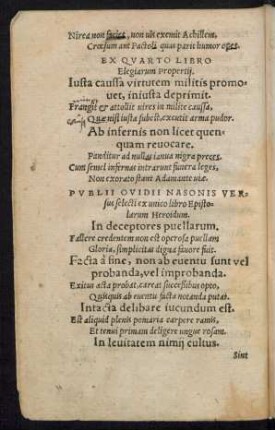 Nirea non facies, non uis exemit Achillem,
Croesum aut Pactoli quas parit humor opes.
EX QVARTO LIBRO
Elegiarum Propertij.
Iusta caussa virtutem militis promo-
uet, iniusta deprimit.
Frangit & attollit uires in milite caussa,
Quæ nisi iusta subest, excutit arma pudor.
Ab infernis non licet quen-
quam reuocare.
Panditur ad nullas ianua nigra preces.
Cum semel infernas intrarunt funera leges,
Non exorato stant Adamante uiæ.
PVBLII OVIDII NASONIS VER-
sus selecti ex unico libro Episto-
larum Heroidum.
In deceptores puellarum.
Fallere credentem non est operosa puellam
Gloria, simplicitas digna fauore fuit.
Facta à fine, non ab euentu sunt vel
probanda, vel improbanda.
Exitus acta probat, careat successibus opto,
Quisquis ab euentu facta notanda putat.
Intacta delibare iucundum est.
Est aliquid plenis pomaria carpere ramis,
Et tenui primam deligere ungue rosam.
In leuitatem nimij cultus.
Sint